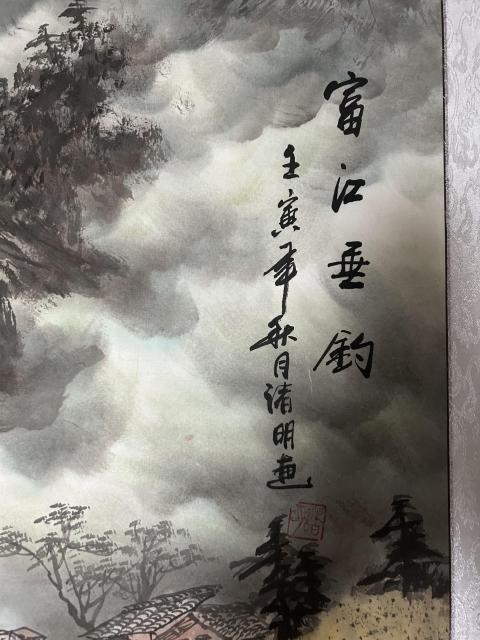 富江垂釣
壬寅年秋月清明畫